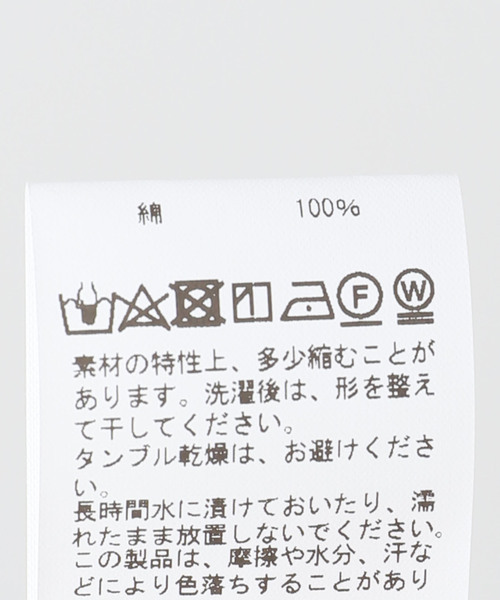 綿 100%
F W
素材の特性上、多少縮むことが
あります。洗濯後は、形を整え
て干してください。
タンブル乾燥は、お避けくださ
い。
長時間水に漬けておいたり、濡
れたまま放置しないでください。
この製品は、摩擦や水分、汗な
どにより色落ちすることがあり